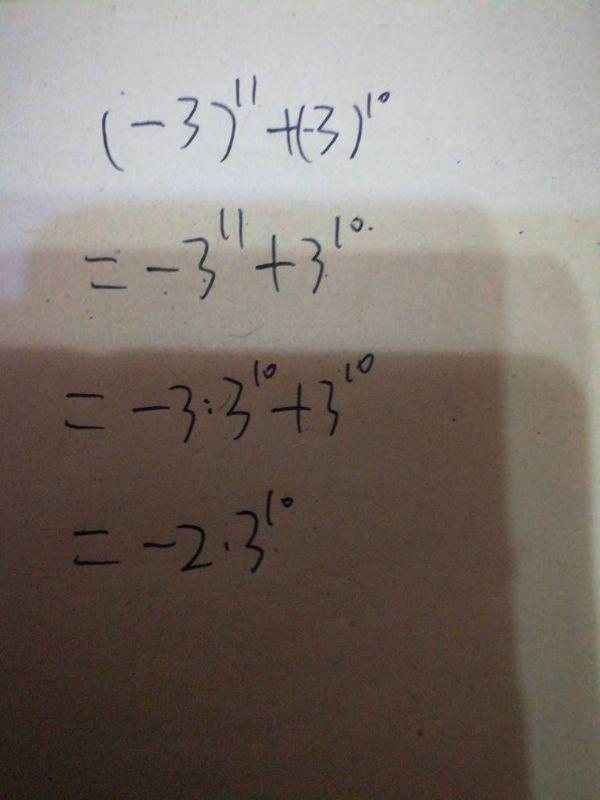 (-3)¹¹+(-3)¹⁰
=-3¹¹+3¹⁰.
=-3·3¹⁰+3¹⁰
=-2·3¹⁰